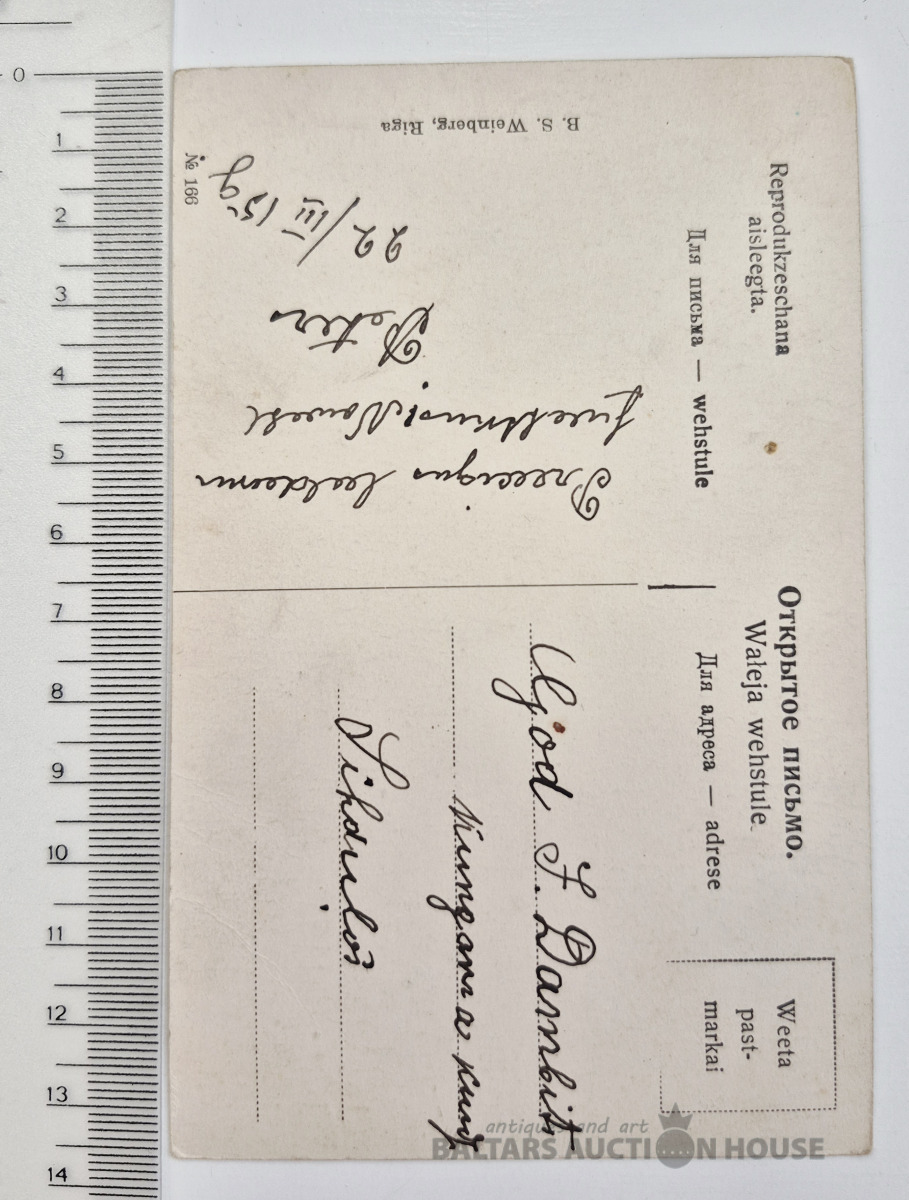 Открытое письмо.
Waleja wehstule.
Reprodukzeschana
aisleegta.
Для письма — wehstule
Для адреса — adrese
Weeta
past-
markai
Preezigus
Peters
22/III 15 g
God J. Dambit
kungam
B. S. Weinberg, Riga
№ 166
0
1
2
3
4
5
6
7
8
9
10
11
12
13
14
antiques and art
BALTARS AUCTION HOUSE